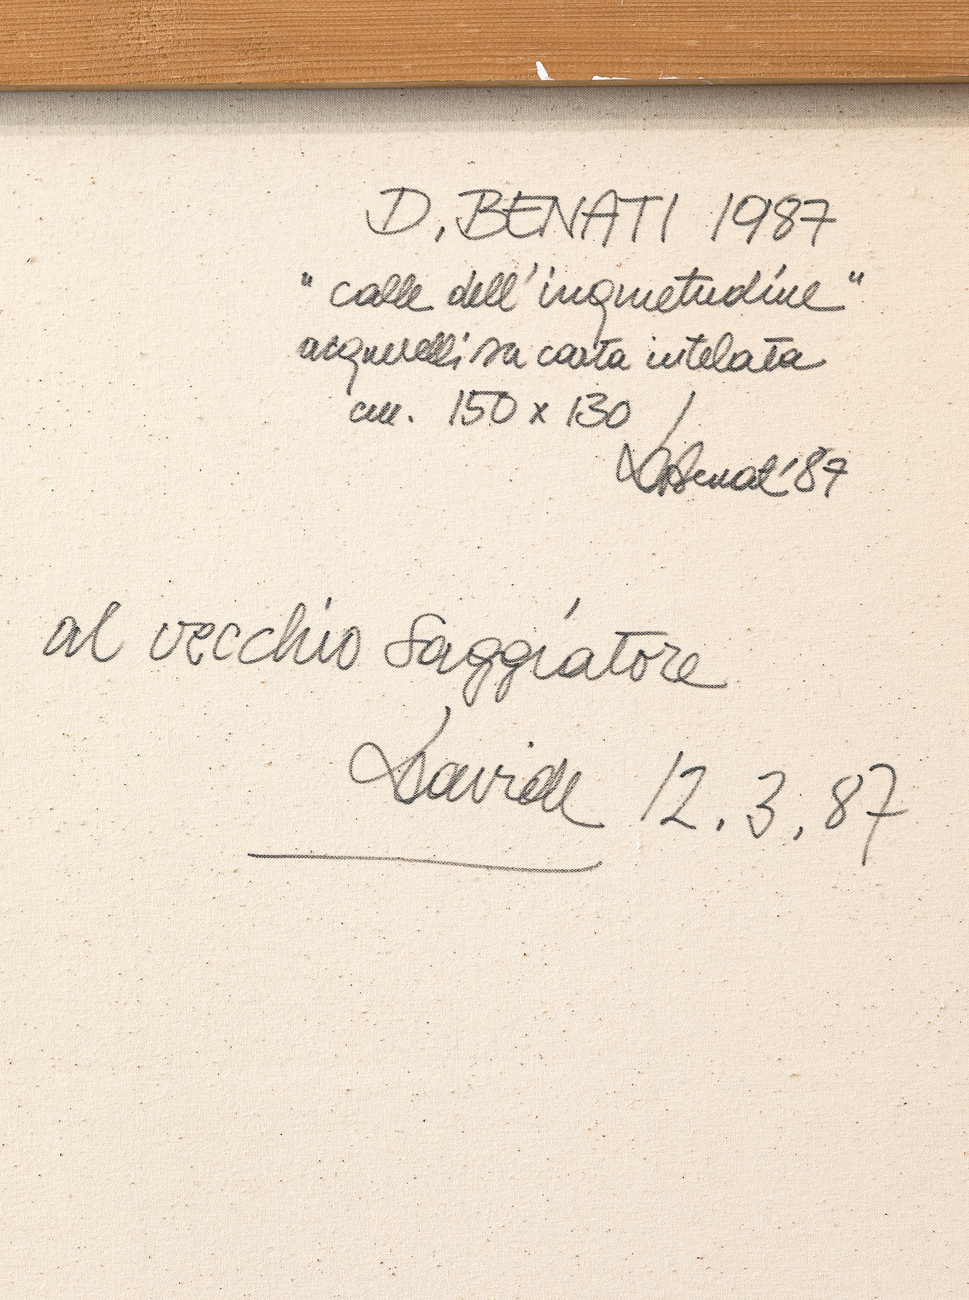 D. BENATI 1987
"calle dell'inquietudine"
acquerelli su carta intelata
cm. 150 x 130
DBenati '87
al vecchio Saggiatore
Davide 12.3.87